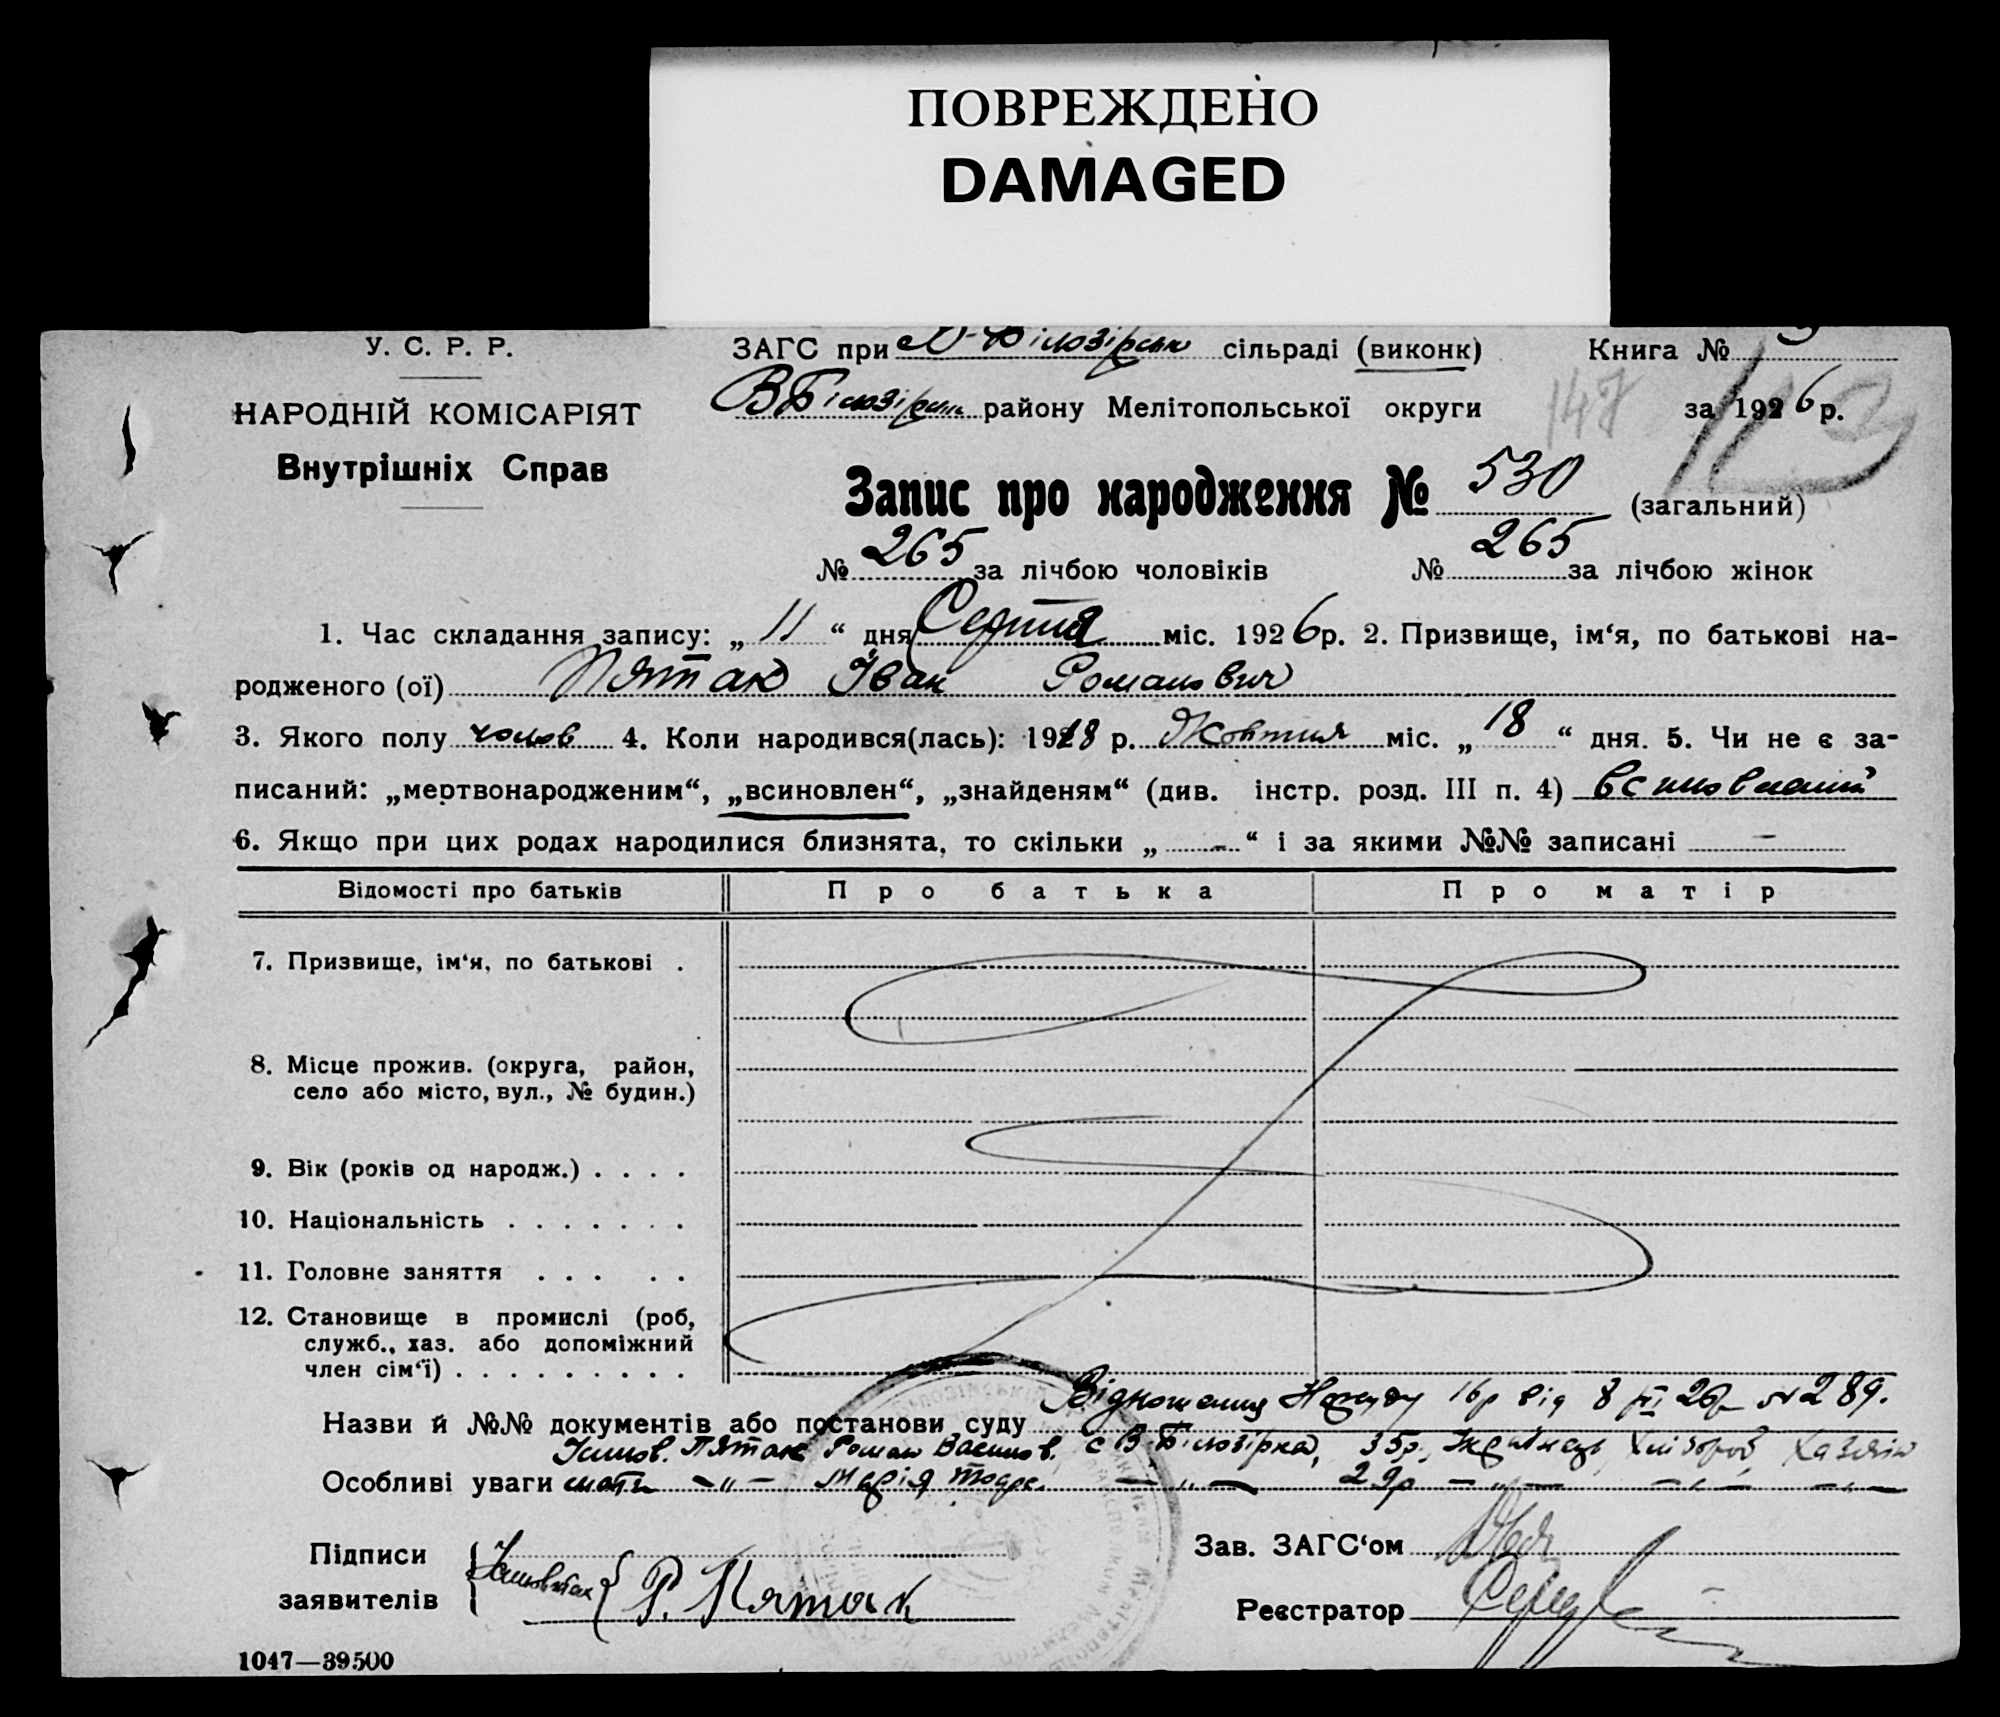 ПОВРЕЖДЕНО
DAMAGED
У. С. Р. Р. ЗАГС при В-Білозірськ сільраді (виконк) Книга № 3
НАРОДНІЙ КОМІСАРІЯТ В Білозірськ району Мелітопольської округи 147 за 1926 р. 113
Внутрішніх Справ
Запис про народження № 530 (загальний)
№ 265 за лічбою чоловіків № 265 за лічбою жінок
1. Час складання запису: „ 11 “ дня Серпня міс. 1926 р. 2. Призвище, ім‘я, по батькові на-
родженого (ої) Пятак Іван Романович
3. Якого полу чолов 4. Коли народився(лась): 1918 р. Жовтня міс. „ 18 “ дня. 5. Чи не є за-
писаний: „мертвонародженим“, „всиновлен“, „знайденям“ (див. інстр. розд. III п. 4) всиновлений
6. Якщо при цих родах народилися близнята, то скільки „ - “ і за якими №№ записані -
Відомості про батьків Про батька Про матір
7. Призвище, ім‘я, по батькові .
8. Місце прожив. (округа, район,
село або місто, вул., № будин.)
9. Вік (років од народж.) . . . .
10. Національність . . . . . . .
11. Головне заняття . . . . .
12. Становище в промислі (роб,
служб., хаз. або допоміжний
член сім‘ї) . . . . . . . . .
Назви й №№ документів або постанови суду Відношення 16р від 8 VI 26р № 289.
Усинов. Пятак Роман Васильов. с В. Білозірка, 35р., Українець, Хлібороб, Хазяїн
Особливі уваги мати — „ — Марія Тодос. — „ — 29р — „ — — „ — — „ —
Підписи Зав. ЗАГС‘ом
заявителів { Р. Пятак Реєстратор
1047—39500